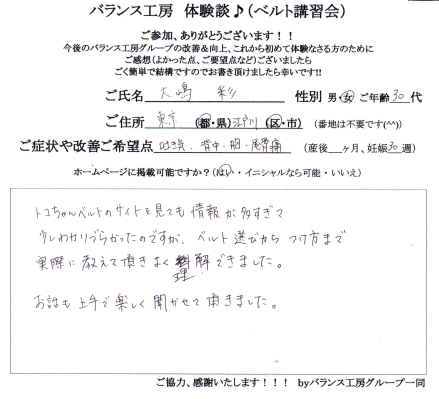 バランス工房 体験談♪(ベルト講習会)
ご参加、ありがとうございます!!
今後のバランス工房グループの改善&向上、これから初めて体験なさる方のために
ご感想(よかった点、ご要望点など)ございましたら
ごく簡単で結構ですのでお書き頂けましたら幸いです!!
ご氏名 大嶋 彩 性別 男・女 ご年齢30代
ご住所 東京 (都・県) 江戸川 (区・市) (番地は不要です(^^))
ご症状や改善ご希望点 吐き気、背中・胸・尾骨痛 (産後 ヶ月、妊娠30週)
ホームページに掲載可能ですか?(はい・イニシャルなら可能・いいえ)
トコちゃんベルトのサイトを見ても情報が多すぎて
少しわかりづらかったのですが、ベルト選びから つけ方まで
実際に教えて頂きよく理解できました。
お話も上手で楽しく聞かせて頂きました。
ご協力、感謝いたします!!! byバランス工房グループ一同